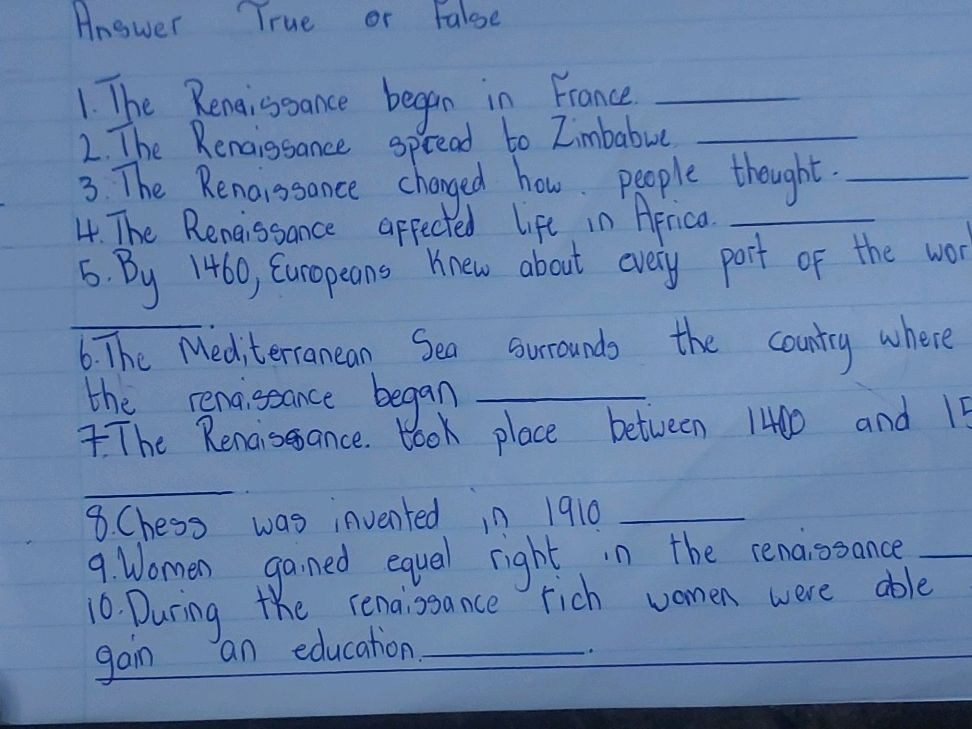 Answer True or False
1. The Renaissance began in France. ________
2. The Renaissance spread to Zimbabwe ________
3. The Renaissance changed how people thought. ________
4. The Renaissance affected life in Africa. ________
5. By 1460, Europeans Knew about every part of the wor
________.
6. The Mediterranean Sea surrounds the country where
the renaissance began ________
7. The Renaissance. took place between 1400 and 15
________
8. Chess was invented in 1910 ________
9. Women gained equal right in the renaissance ____
10. During the renaissance rich women were able
gain an education. ________.